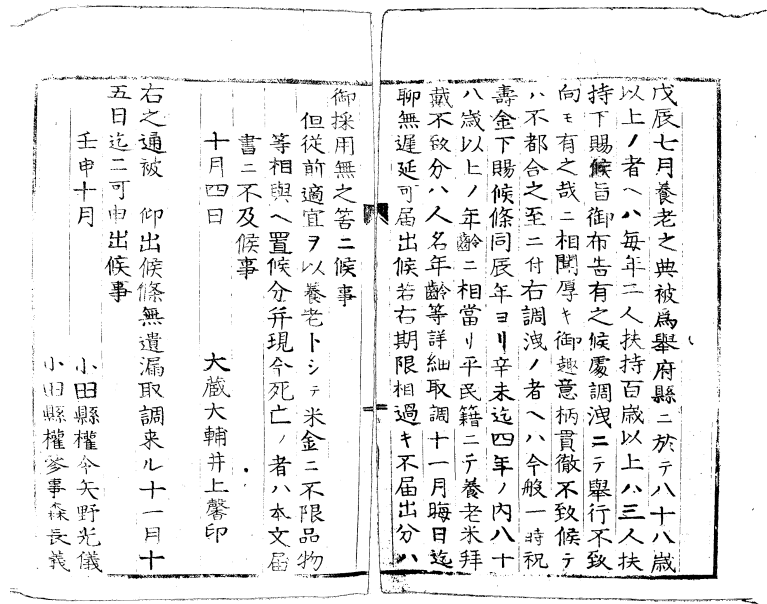 戊辰七月養老之典被爲舉府縣ニ於テ八十八歳
以上ノ者ヘハ毎年二人扶持百歳以上ハ三人扶
持下賜候旨御布告有之候處調洩ニテ舉行不致
向モ有之哉ニ相聞厚キ御趣意柄貫徹不致候テ
ハ不都合之至ニ付右調洩ノ者ヘハ今般一時祝
壽金下賜候條同辰年ヨリ辛未迄四年ノ内八十
八歳以上ノ年齡ニ相當リ平民籍ニテ養老米拜
戴不致分ハ人名年齡等詳細取調十一月晦日迄
聊無遅延可届出候若右期限相過キ不届出分ハ
御採用無之筈ニ候事
但從前適宜ヲ以養老トシテ米金ニ不限品物
等相與ヘ置候分并現今死亡ノ者ハ本文届
書ニ不及候事
十月四日 大蔵大輔井上馨印
右之通被 仰出候條無遺漏取調来ル十一月十
五日迄ニ可申出候事
壬申十月
小田縣權令矢野光儀
小田縣權參事森長義